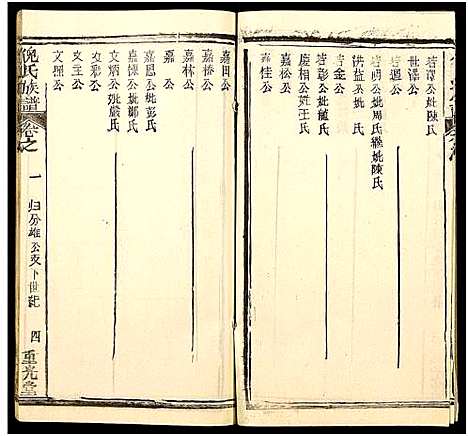 若澤公妣陳氏
世澤公
若暹公
若明公妣周氏繼妣陳氏
洪益公妣氏
若金公
若彰公妣龍氏
慶相公妣王氏
嘉松公
嘉桂公
嘉田公
嘉橋公
嘉林公
嘉公
嘉恩公妣彭氏
文懷公妣鄒氏
文炳公妣嚴氏
文彩公
文主公
文理公
倪氏族譜 卷之一 归分雄公支下世紀 四 重光堂